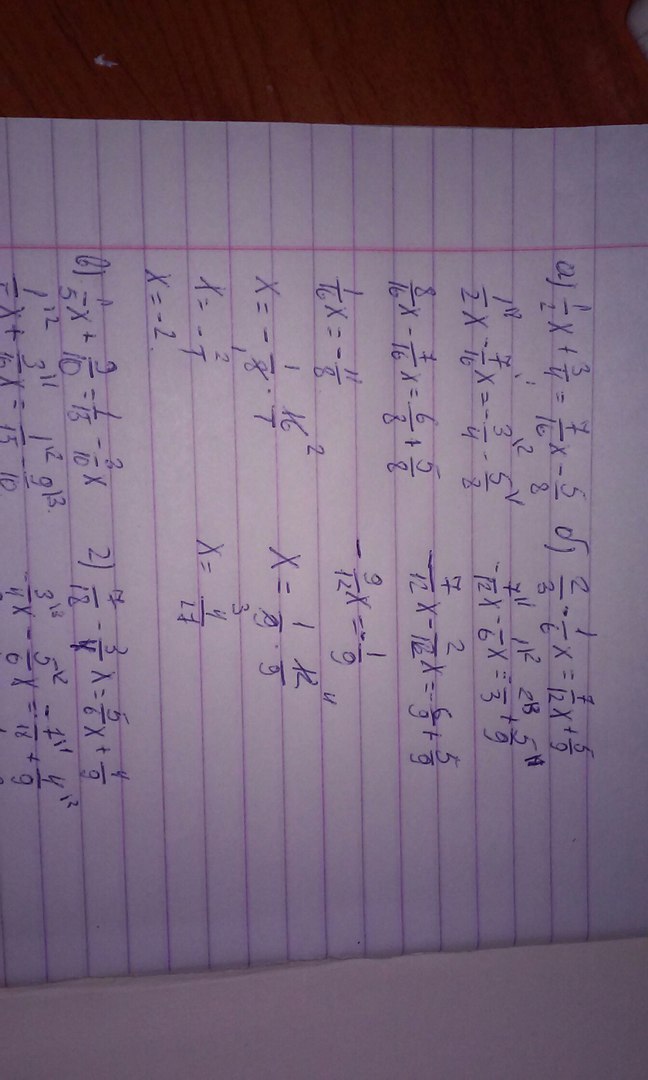 а) 1/2 x + 3/4 = 7/16 x - 5/8
1/2 x - 7/16 x = - 3/4 - 5/8
8/16 x - 7/16 x = 6/8 + 5/8
1/16 x = - 11/8
x = - 1/8 · 16/1
x = - 2/1
x = - 2.
б) 2/3 - 1/6 x = 7/12 x + 5/9
- 7/12 x - 1/6 x = - 2/3 + 5/9
- 7/12 x - 2/12 x = - 6/9 + 5/9
- 9/12 x = - 1/9
x = 1/9 · 12/9
x = 4/27
в) 1/5 x + 9/10 = 1/15 - 3/10 x
г) 7/18 - 3/4 x = 5/6 x + 4/9
- 3/4 x - 5/6 x = - 7/18 + 4/9